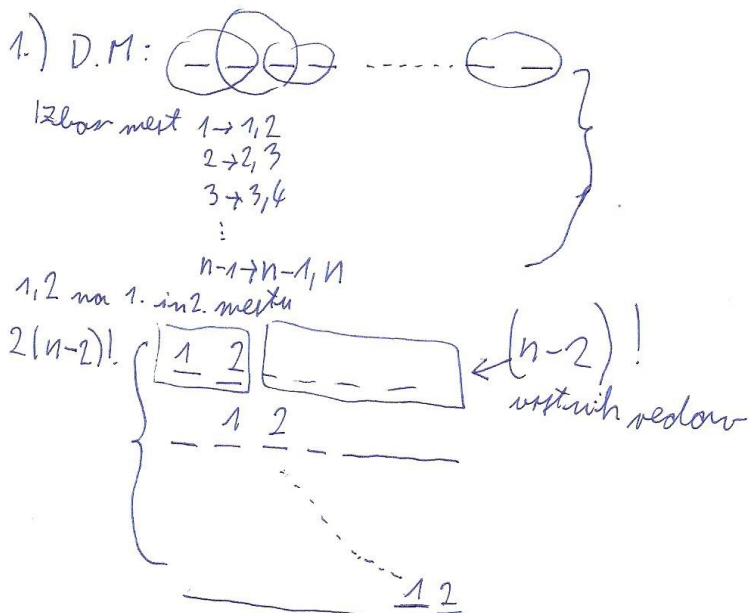 1.) D.M: _ _ _ _ ...... _ _
Izbor mest 1→1,2
2→2,3
3→3,4
⋮
n-1→n-1,n
1,2 na 1. in 2. mestu
2(n-2)! 1 2 _ _ _ _ ← (n-2)!
vrstnih redov
_ 1 2 _ ___
1 2